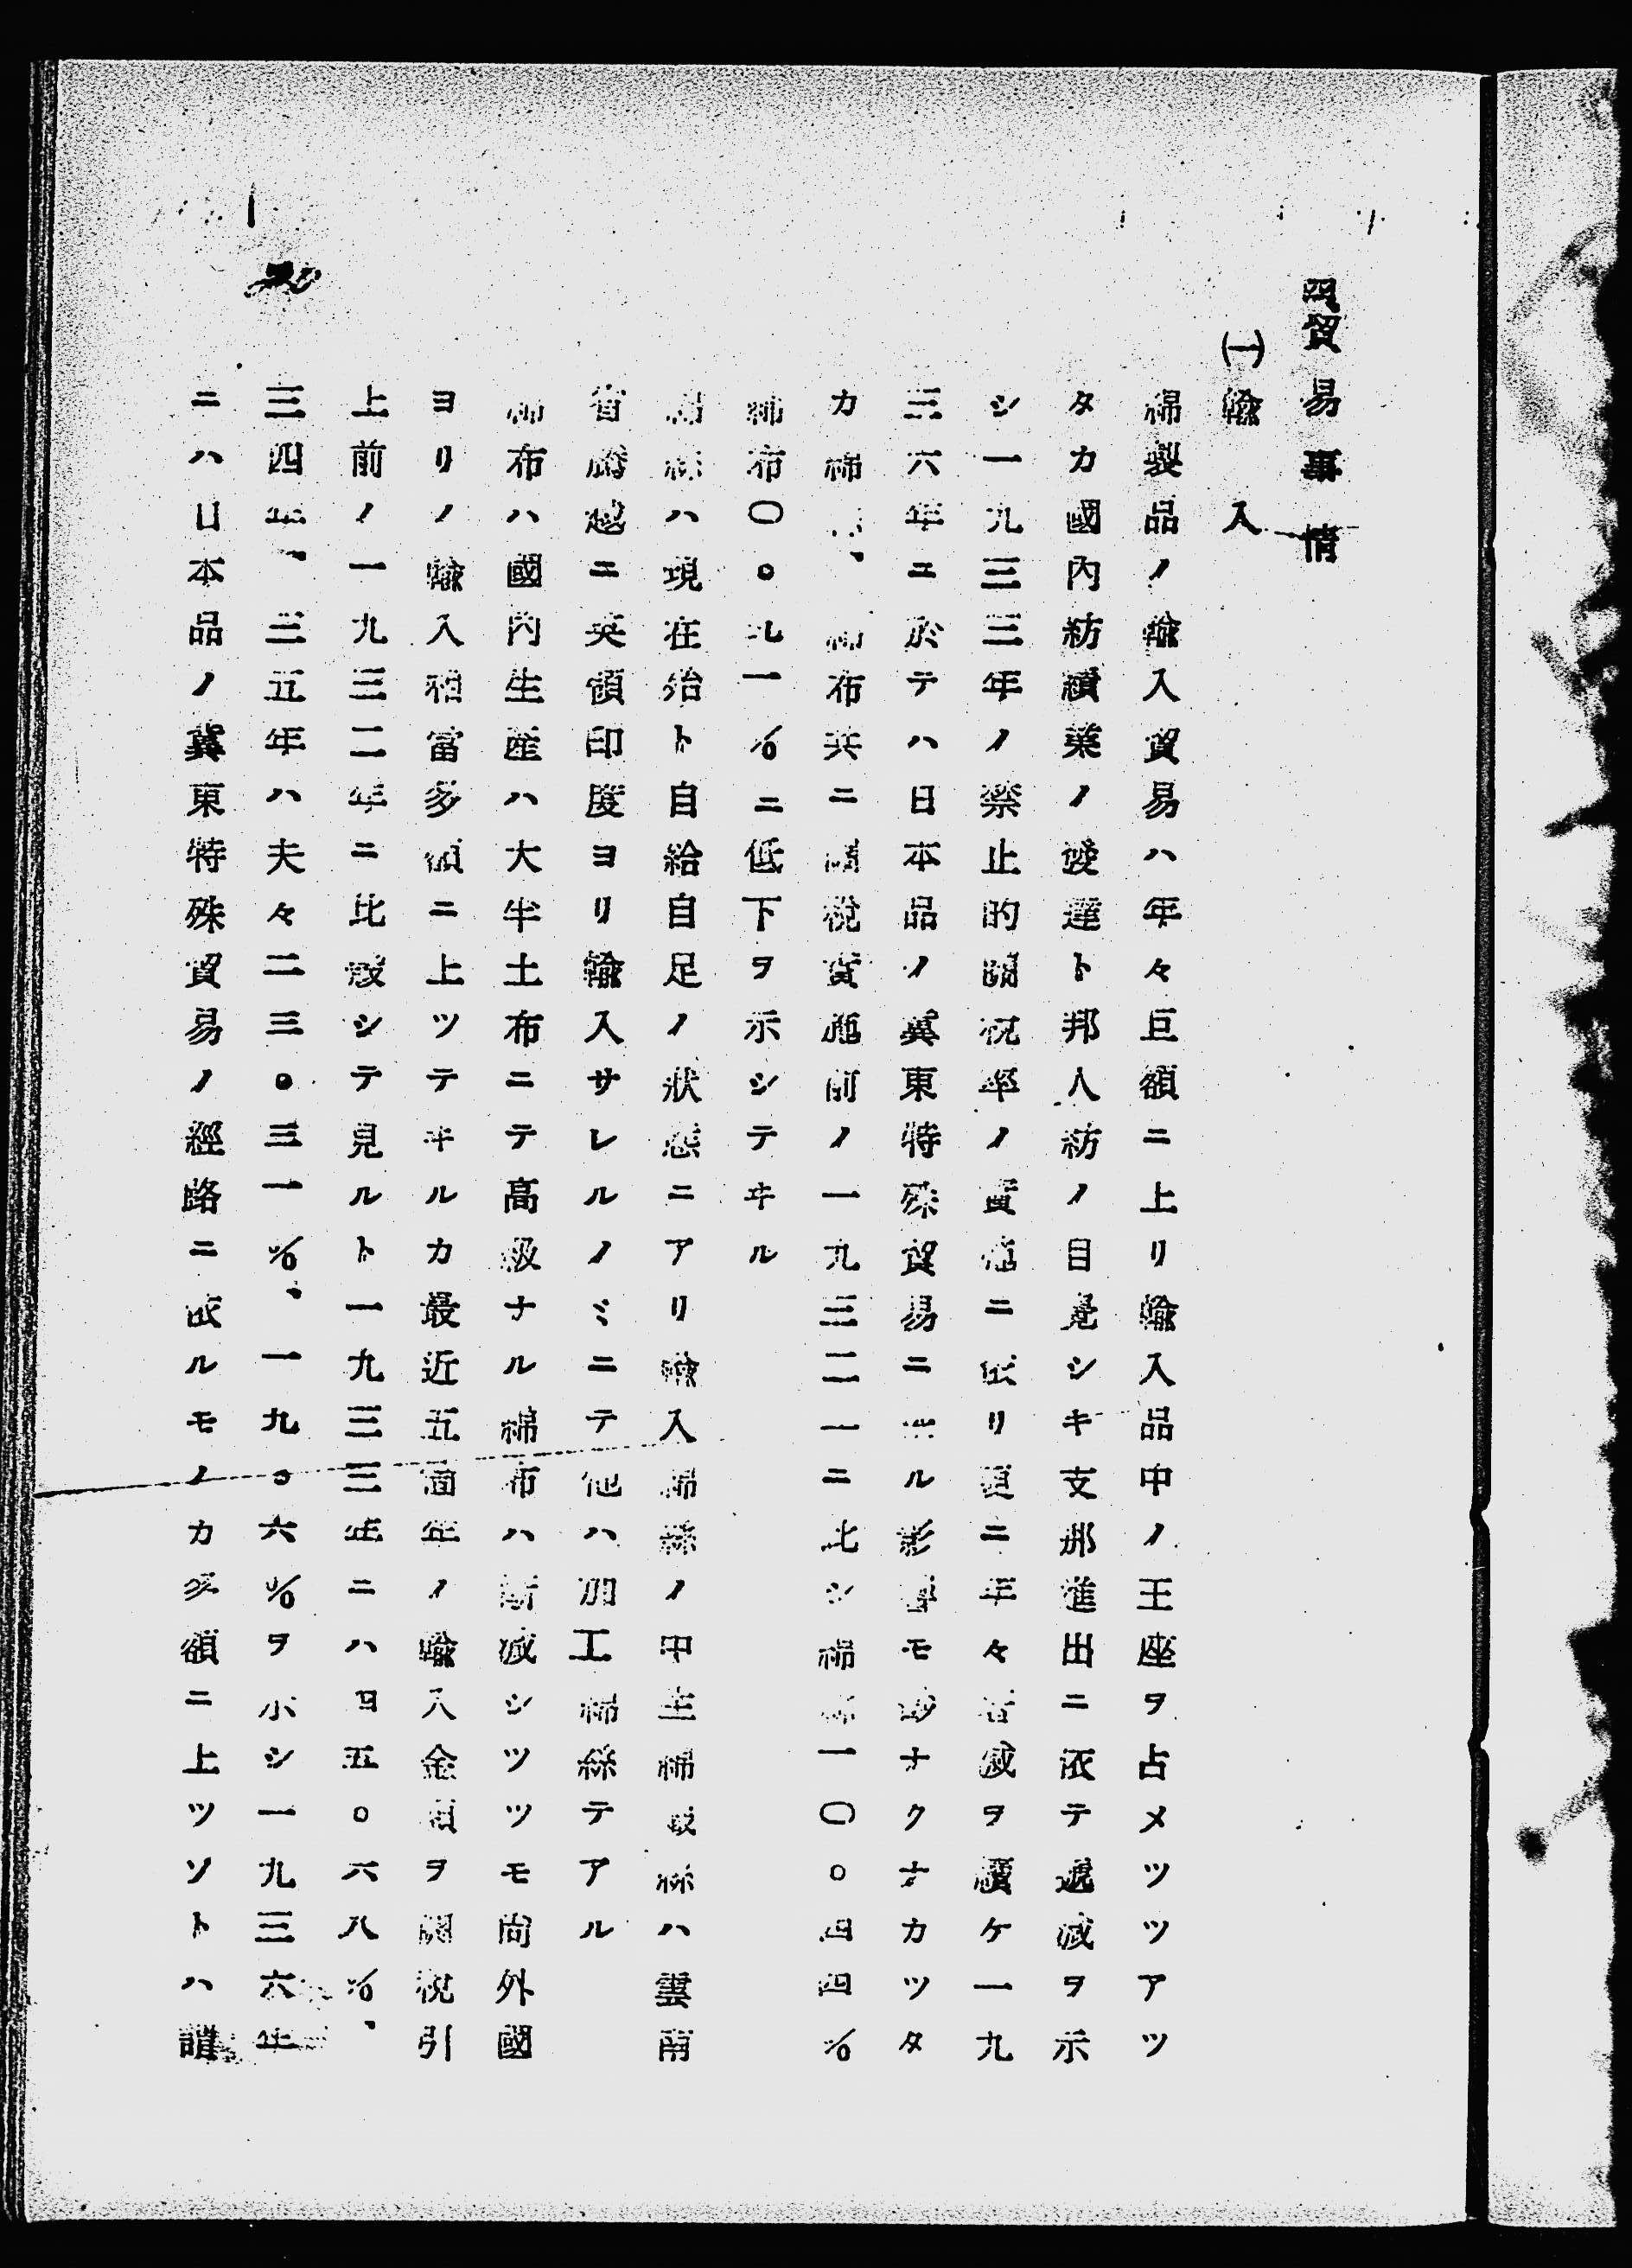 四貿易事情
(一)輸入
綿製品ノ輸入貿易ハ年々巨額ニ上リ輸入品中ノ王座ヲ占メツツアツ
タカ國內紡績業ノ發達ト邦人紡ノ目覺シキ支那進出ニ依テ遞減ヲ示
シ一九三三年ノ禁止的關稅率ノ實施ニ依リ更ニ年々者減ヲ續ケ一九
三六年ニ於テハ日本品ノ冀東特殊貿易ニ ル影響モ尠ナクナカツタ
カ綿絲、綿布共ニ關稅實施前ノ一九三二一ニ比シ綿絲一〇。四四%
綿布〇。九一%ニ低下ヲ示シテヰル
綿絲ハ現在殆ト自給自足ノ狀態ニアリ輸入綿絲ノ中主綿 絲ハ雲南
省騰越ニ英領印度ヨリ輸入サレルノミニテ他ハ加工綿絲テアル
綿布ハ國內生產ハ大半土布ニテ高級ナル綿布ハ漸減シツツモ尙外國
ヨリノ輸入相當多額ニ上ツテヰルカ最近五箇年ノ輸入金額ヲ關稅引
上前ノ一九三二年ニ比較シテ見ルト一九三三年ニハ四五。六八%、
三四年、三五年ハ夫々二三。三一%、一九。六%ヲ示シ一九三六年
ニハ日本品ノ冀東特殊貿易ノ經路ニ依ルモノカ多額ニ上ツソトハ謂